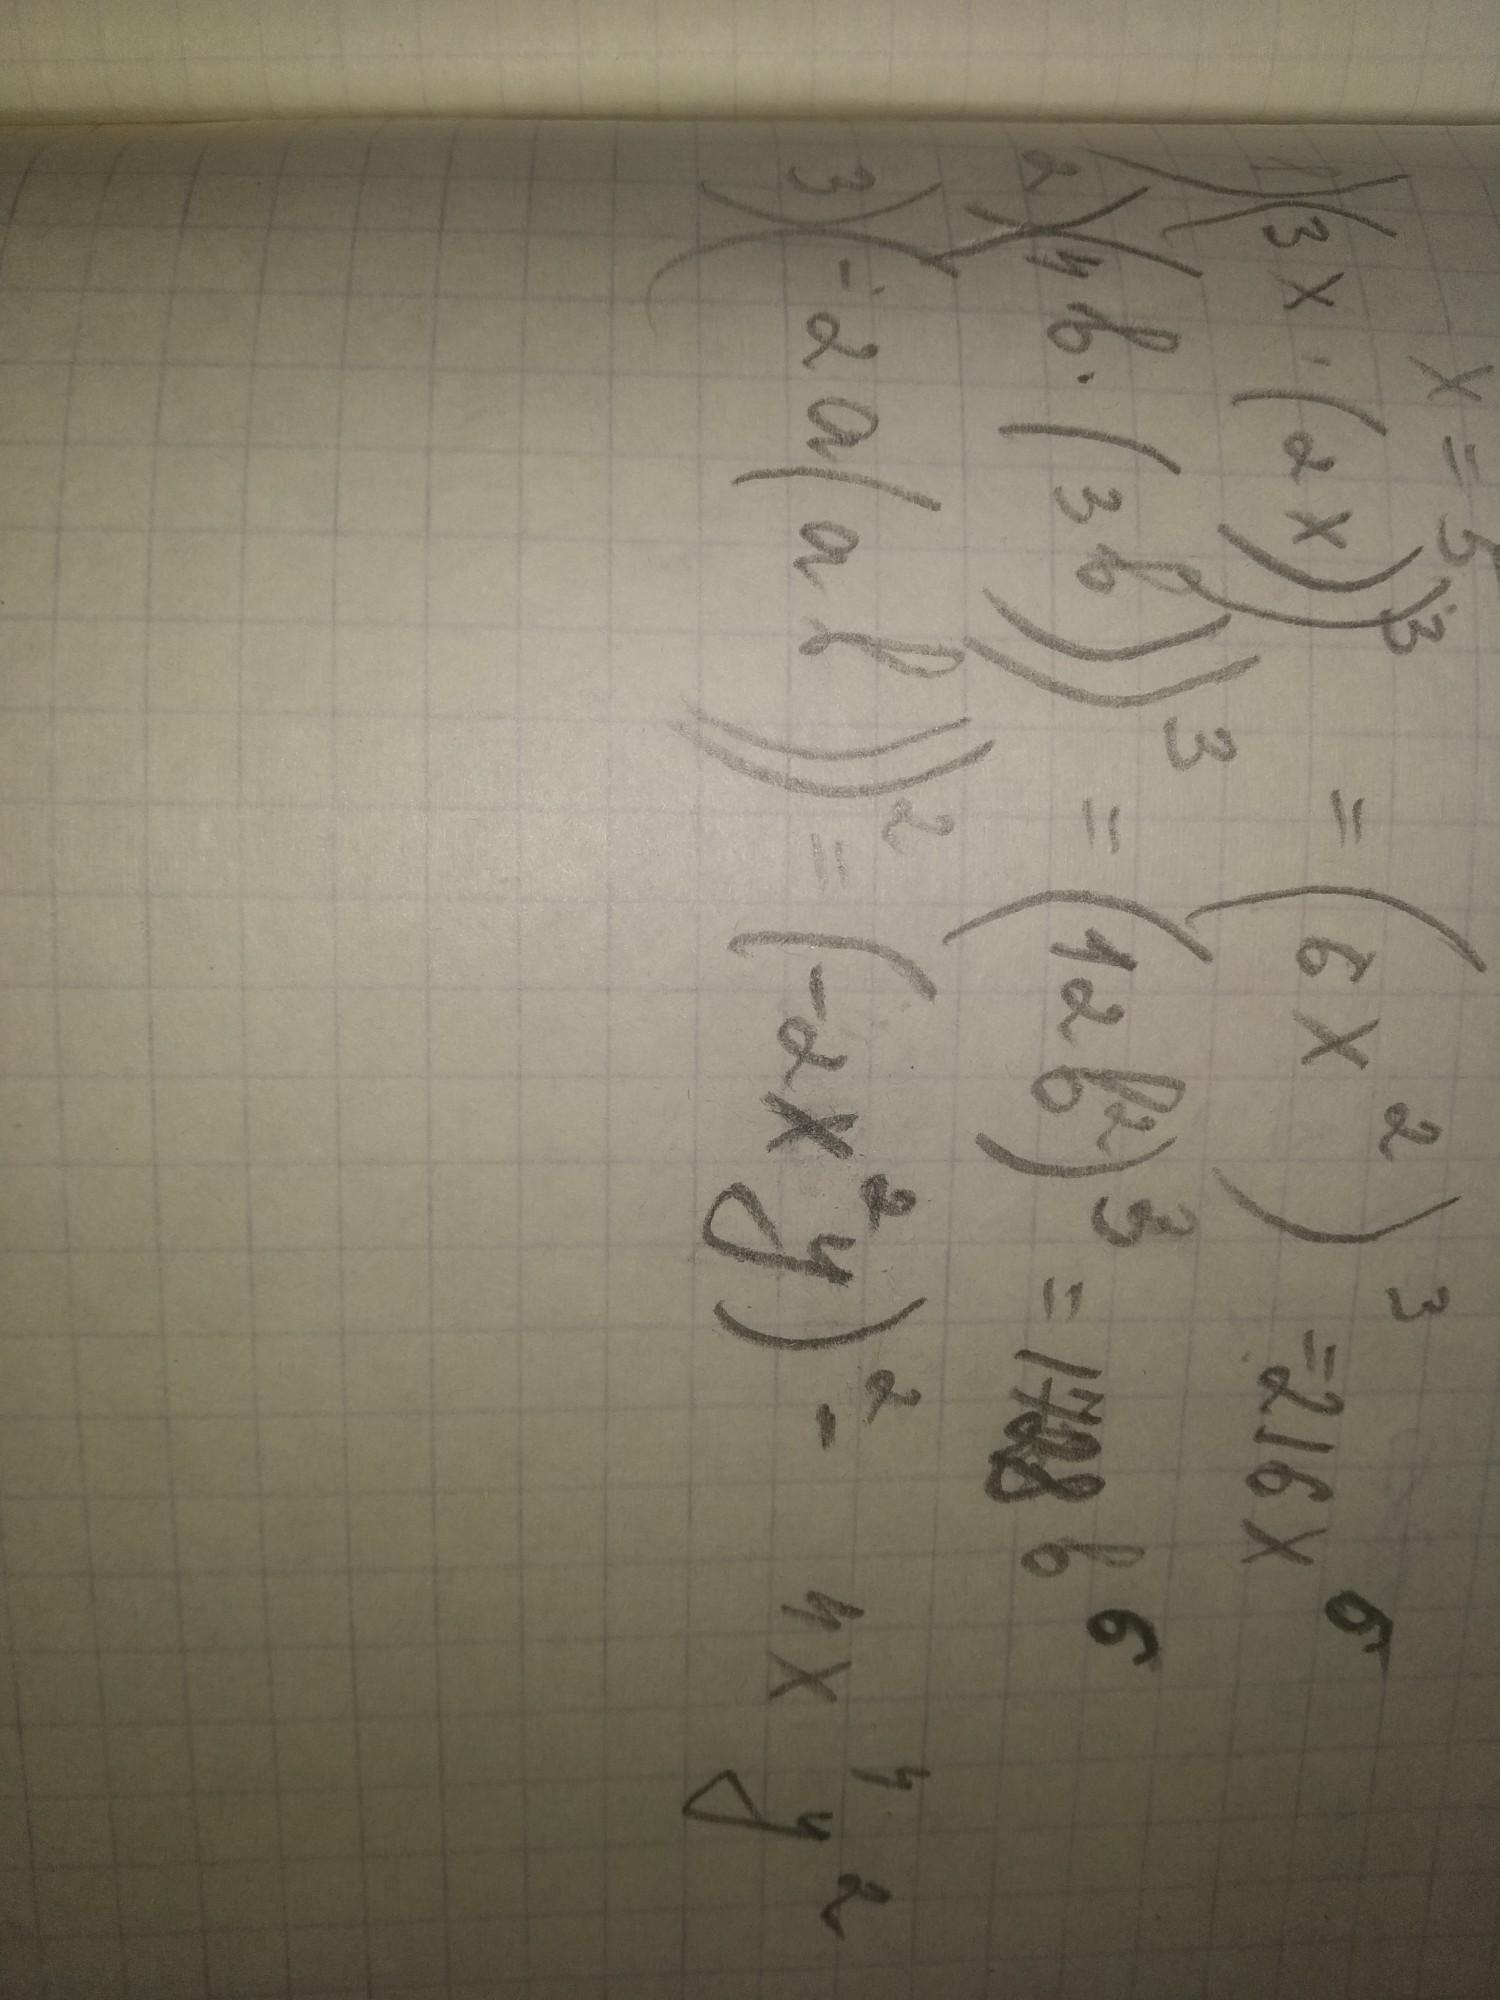 x = 5
1) (3x · (2x))³ = (6x²)³ = 216x⁶
2) (4b · (3b))³ = (12b²)³ = 1728b⁶
3) (-2a(ab))² = (-2x²y)² - 4x⁴y²